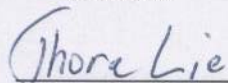 Thora Lie